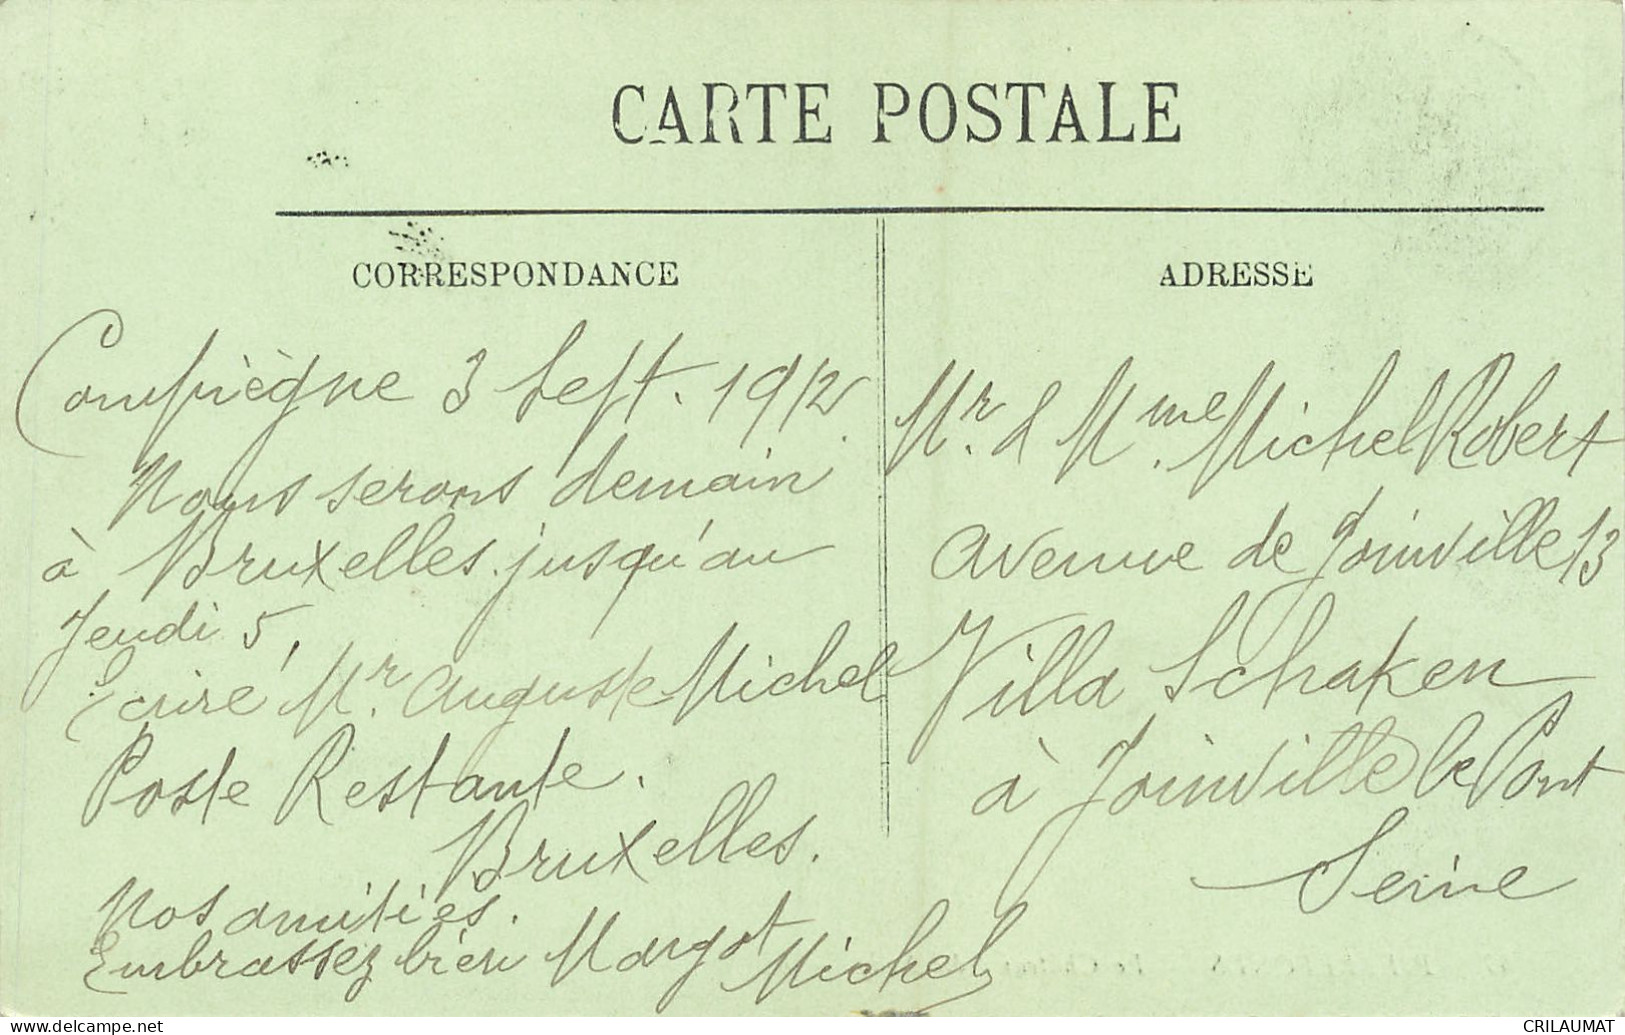 CARTE POSTALE
CORRESPONDANCE
Compiègne 3 Sept. 1912.
Nous serons demain
à Bruxelles jusqu'au
Jeudi 5,
Ecrire Mr. Auguste Michel
Poste Restante.
Bruxelles.
Nos amitiés.
Embrassez bien Margot
Michel
ADRESSE
Mr. & Mme. Michel Robert
Avenue de Joinville 13
Villa Schaken
à Joinville le Pont
Seine
CRILAUMAT